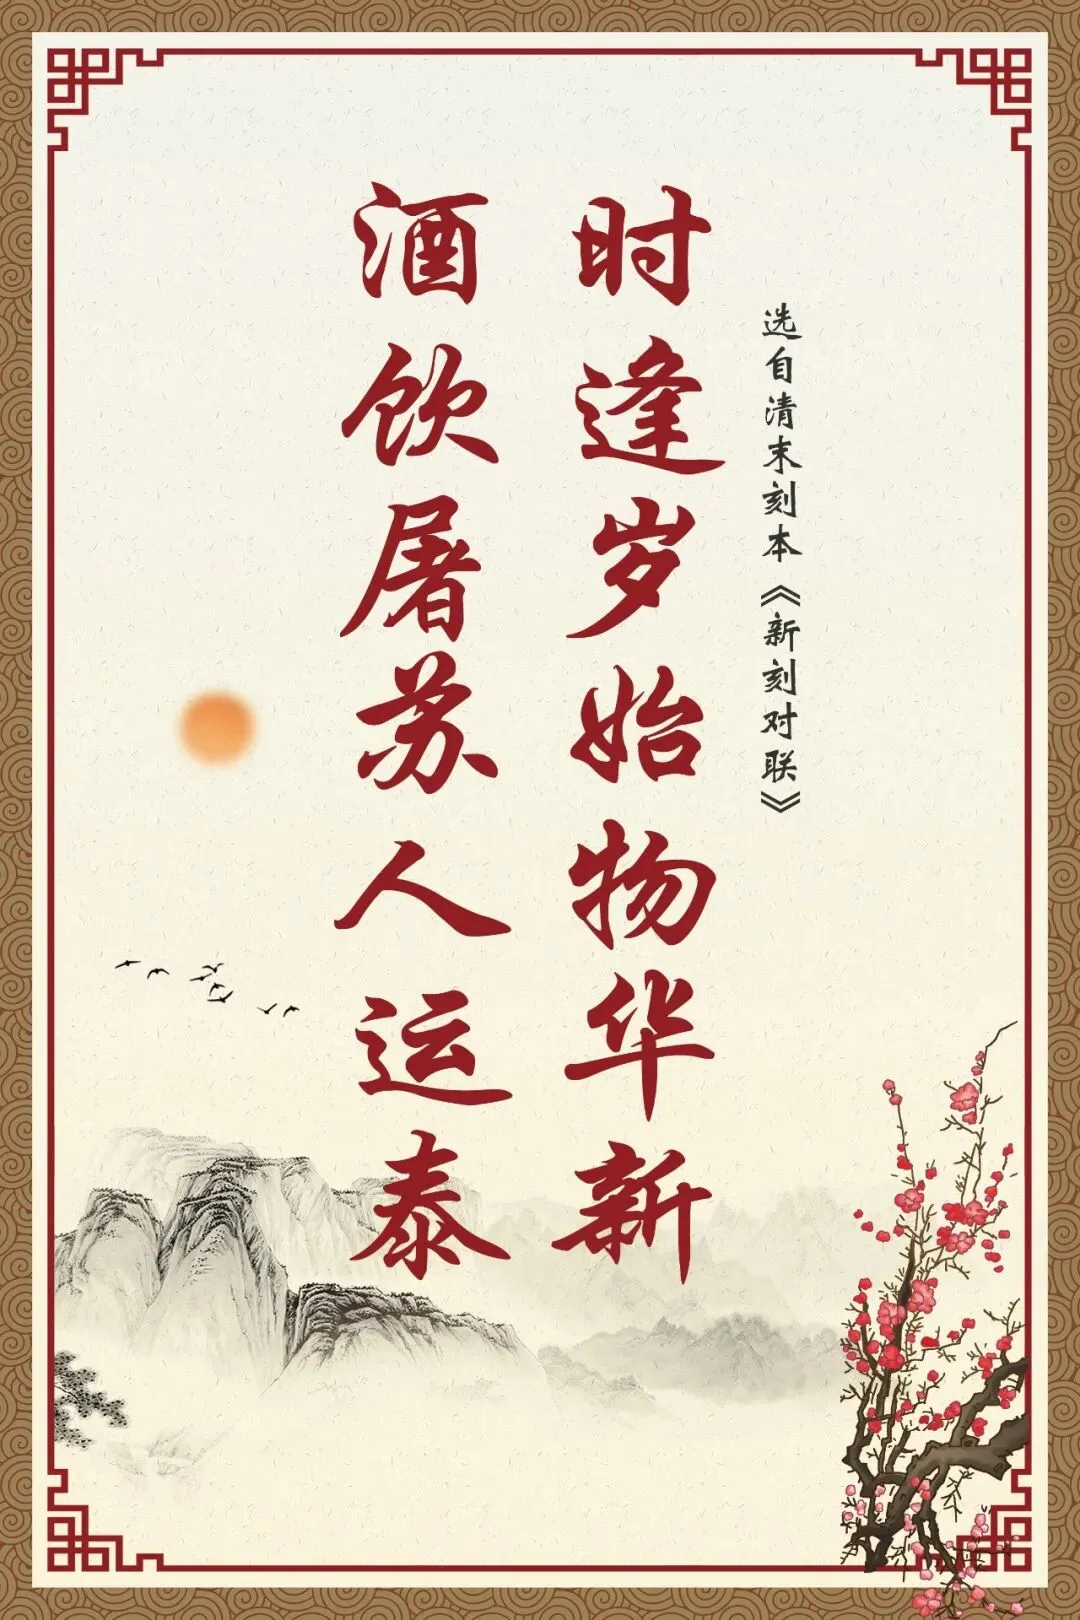 选自清末刻本《新刻对联》
时逢岁始物华新
酒饮屠苏人运泰